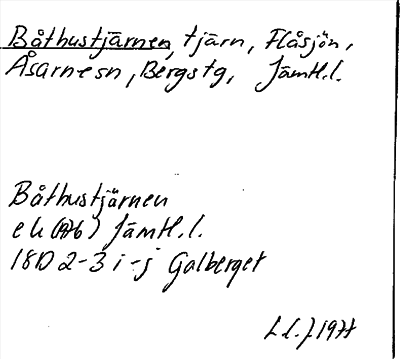 Båthustjärnen, tjärn, Flåsjön,
Åsarne sn, Bergs tg, Jämtl.l.
Båthustjärnen
ek (Afb) Jämtl.l.
18D 2-3 i-j Galberget
L.L.J 1977